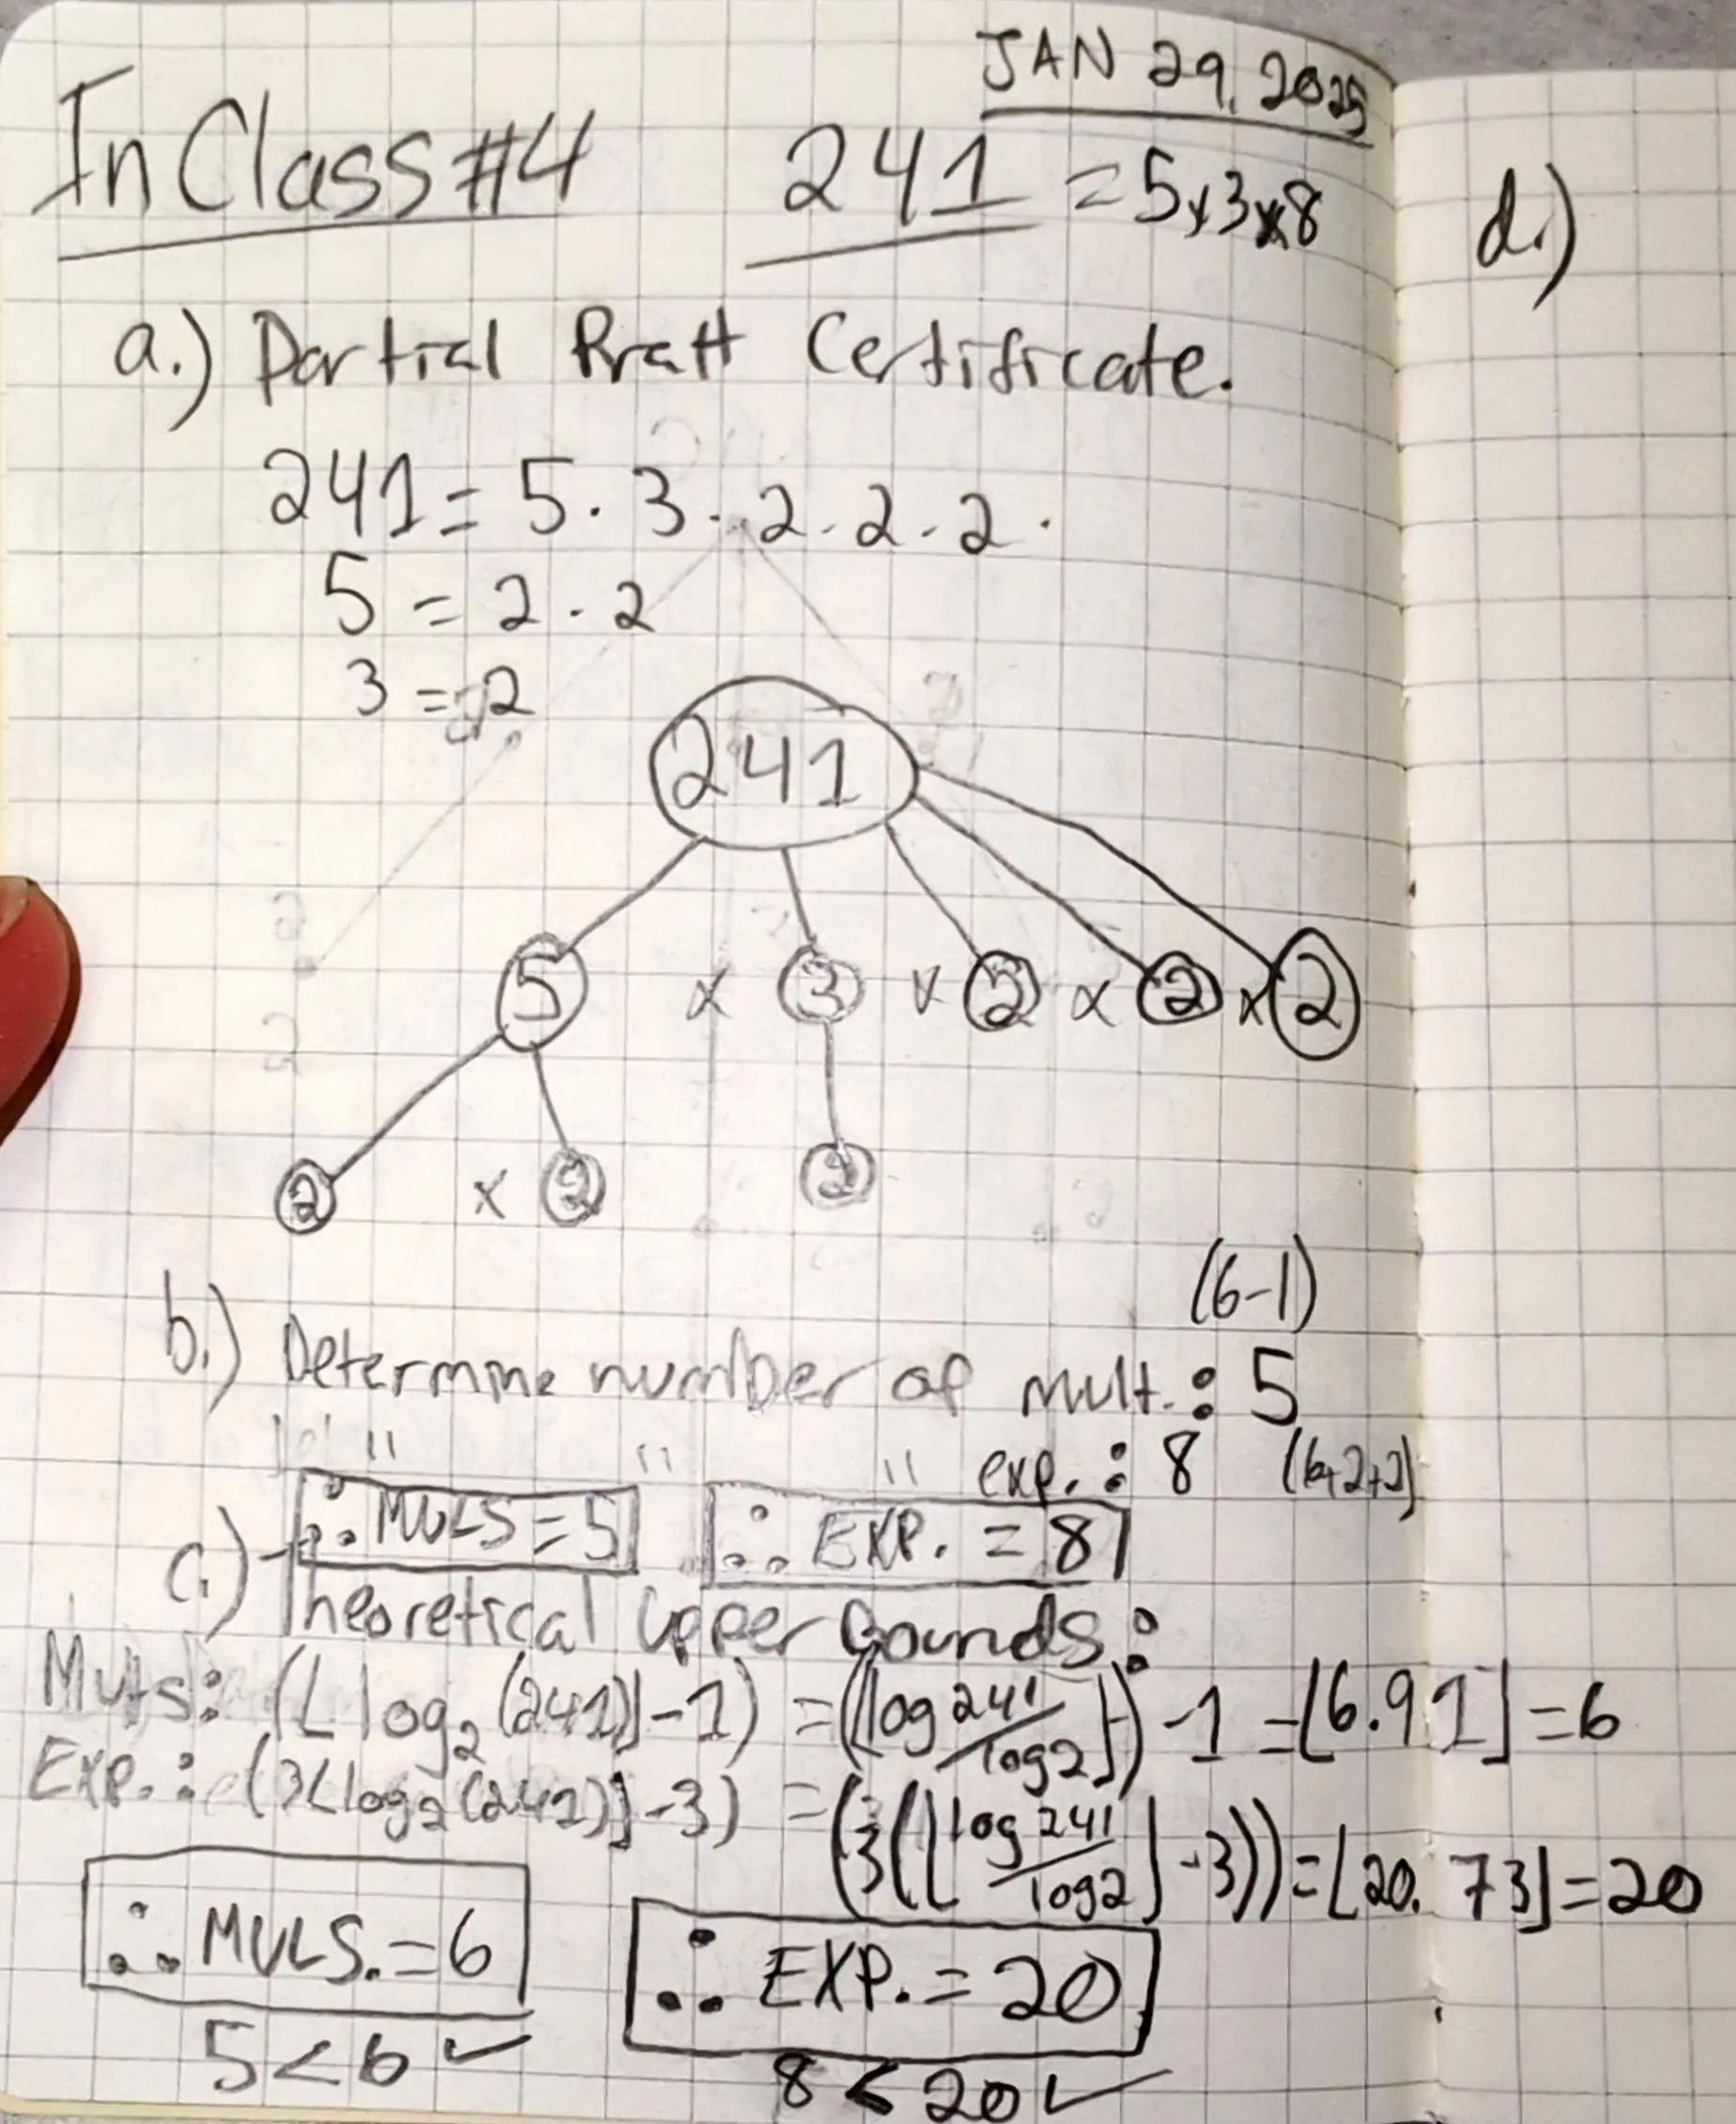 JAN 29, 2025
In Class #4 241 = 5x3x8
a.) Partial Pratt Certificate.
241 = 5 · 3 · 2 · 2 · 2 ·
5 = 2 · 2
3 = 2
241
5 x 3 x 2 x 2 x 2
2 x 2 2
(6-1)
b.) Determine number of mult. : 5
" " " exp. : 8 (6+2+2)
∴ MULS = 5 ∴ EXP. = 8
c.) Theoretical Upper Bounds:
Muts: (⌊log₂(241)⌋-1) = (⌊log 241/log2⌋) -1 = ⌊6.91⌋ = 6
Exp.: (3⌊log₂(241)⌋-3) = (3(⌊log 241/log2⌋-3)) = ⌊20.73⌋ = 20
∴ MULS. = 6 ∴ EXP. = 20
5 < 6 ✓ 8 < 20 ✓
d.)